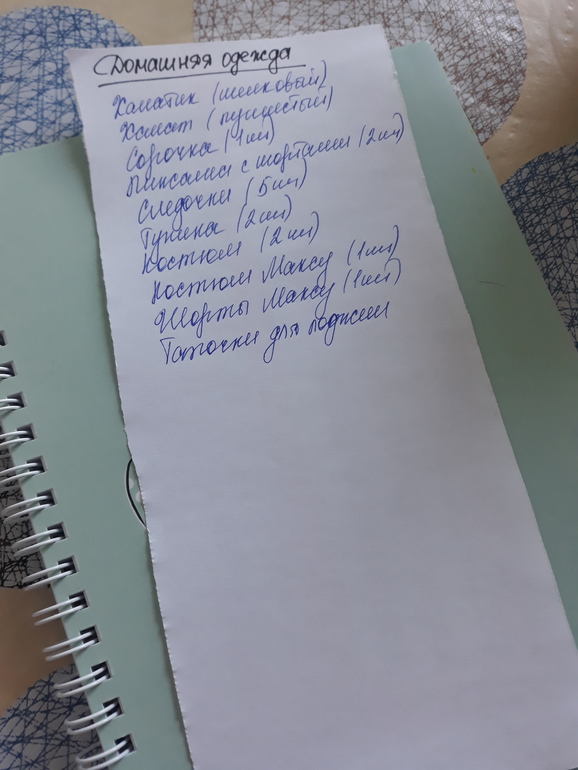 Домашняя одежда
Халатик (шелковый)
Халат (пушистый)
Сорочка (1шт)
Пижама с шортами (2шт)
Следочки (5шт)
Туника (2шт)
Костюм (2шт)
Костюм Максу (1шт)
Шорты Максу (1шт)
Тапочки для лоджии